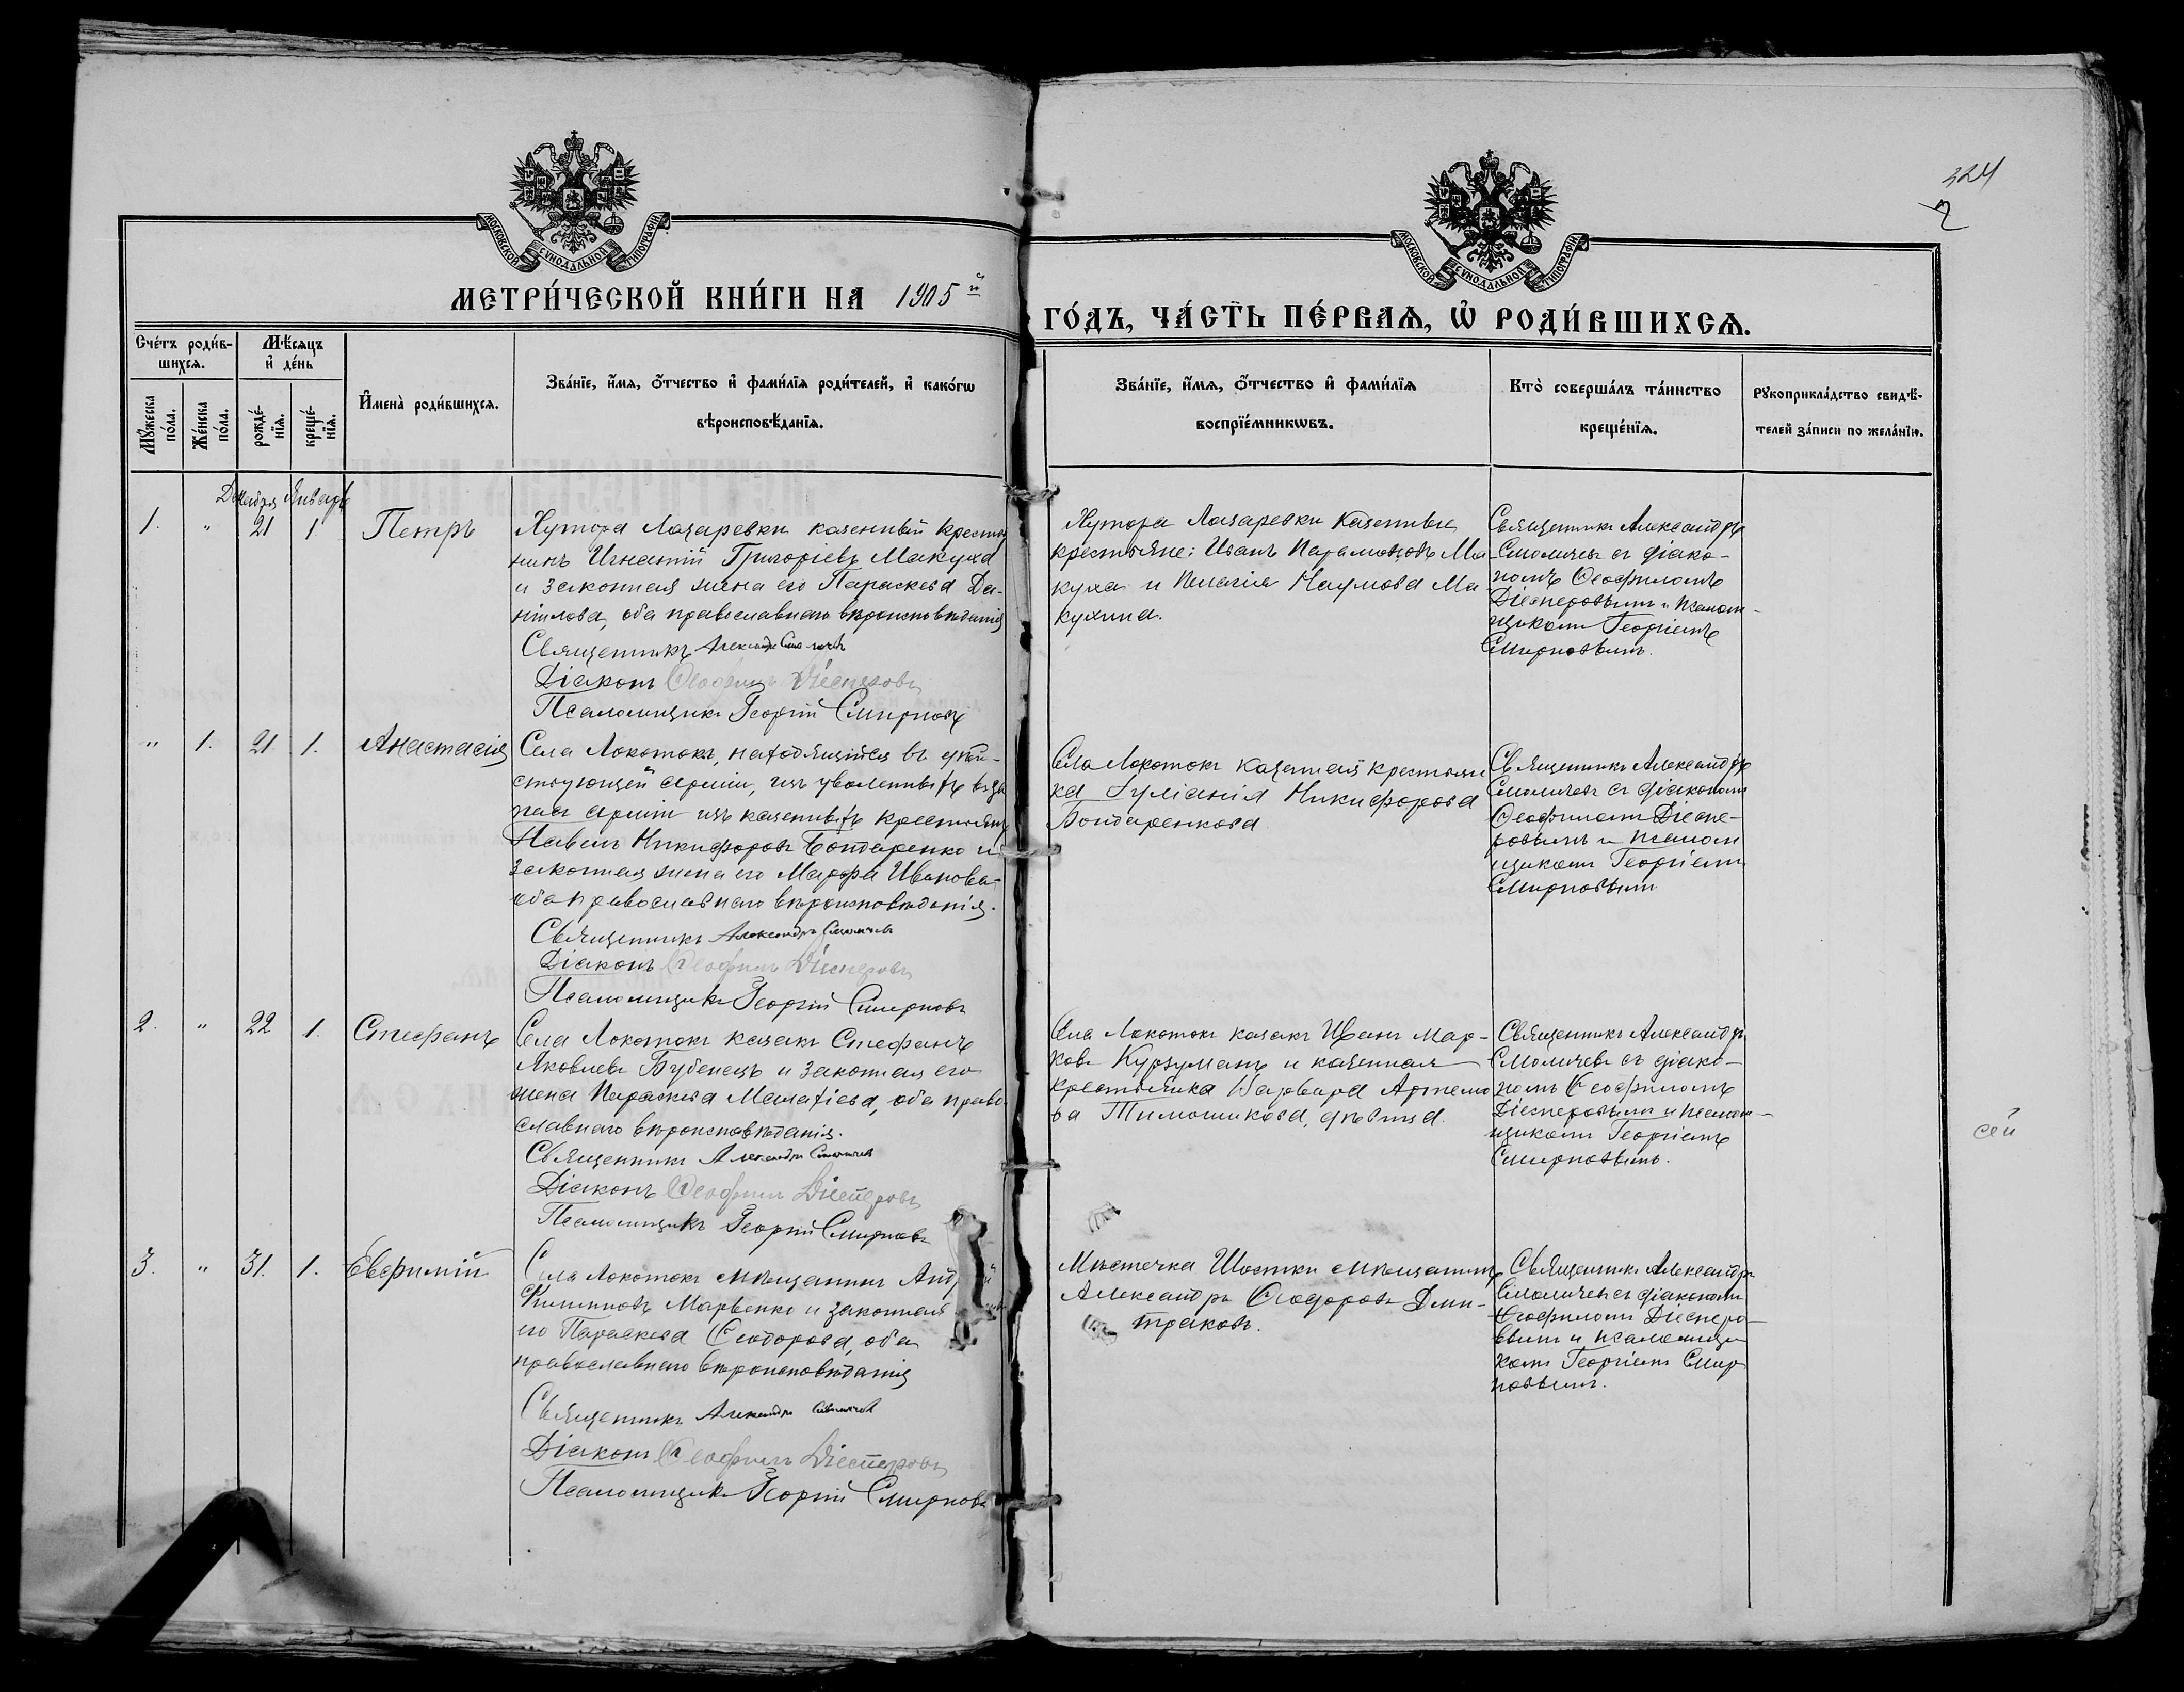 324
2
МОСКОВСКОЙ СѴНОДАЛЬНОЙ ТИПОГРАФІИ
МОСКОВСКОЙ СѴНОДАЛЬНОЙ ТИПОГРАФІИ
МЕТРИ́ЧЕСКОЙ КНИ́ГИ НА 1905й
ГО́ДЪ, ЧА́СТЬ ПЕ́РВАѦ, Ѽ РОДИ́ВШИХСѦ.
Сче́тъ роди́в-
шихсѧ.
Мѣ́сѧцъ
и҆ де́нь
Мꙋ́жеска
по́ла.
Же́нска
по́ла.
рожде́-
нїѧ.
креще́-
нїѧ.
И҆мена̀ роди́вшихсѧ.
Зва́нїе, и҆́мѧ, ѻ҆́тчество и҆ фами́лїѧ роди́телей, и҆ како́гѡ
вѣроисповѣ́данїѧ.
Зва́нїе, и҆́мѧ, ѻ҆́тчество и҆ фами́лїѧ
воспрїе́мникѡвъ.
Кто̀ соверша́лъ та́инство
креще́нїѧ.
Рꙋкоприкла́дство свидѣ́-
телей за́писи по жела́нїю.
Декабря Январь
1. " 21 1 Петръ
Хутора Лазаревки казенный крестья
нинъ Игнатій Григоріевъ Макуха
и законная жена его Параскева Да-
ніилова, оба православнаго вѣроисповѣданія
Священникъ Александръ Смоличевъ
Діаконъ Ѳеофилъ Діесперовъ
Псаломщикъ Георгій Смирновъ
Хутора Лазаревки казенные
крестьяне: Иванъ Парамоновъ Ма
куха и Пелагія Наумова Ма
кухина.
Священникъ Александръ
Смоличевъ съ діако-
номъ Ѳеофиломъ
Діесперовымъ и псалом-
щикомъ Георгіемъ
Смирновымъ.
" 1. 21 1. Анастасія
Села Локотокъ, находящійся въ дѣй-
ствующей арміи, изъ уволенныхъ въ за
пасъ арміи изъ казенныхъ крестьянъ
Павелъ Никифоровъ Бондаренко и
законная жена его Марфа Иванова
оба православнаго вѣроисповѣданія.
Священникъ Александръ Смоличевъ
Діаконъ Ѳеофилъ Діесперовъ
Псаломщикъ Георгій Смирновъ
Села Локотокъ казенная крестьян
ка Іуліанія Никифорова
Бондаренкова
Священникъ Александръ
Смоличевъ съ діакономъ
Ѳеофиломъ Діеспе-
ровымъ и псалом
щикомъ Георгіемъ
Смирновымъ
2. " 22 1. Стефанъ
Села Локотокъ казакъ Стефанъ
Яковлевъ Бубенецъ и законная его
жена Параскева Малахіева, оба право
славнаго вѣроисповѣданія.
Священникъ Александръ Смоличевъ
Діаконъ Ѳеофилъ Діесперовъ
Псаломщикъ Георгій Смирновъ
Села Локотокъ казакъ Иванъ Мар-
ковъ Курзуманъ и казенная
крестьянка Варвара Артемо
ва Тимошикова, дѣвица.
Священникъ Александръ
Смоличевъ съ діако-
номъ Ѳеофиломъ
Діесперовымъ и псалом-
щикомъ Георгіемъ
Смирновымъ.
сей
3. " 31. 1. Евфимій
Села Локотокъ мѣщанинъ Анд й
Филипповъ Марченко и законная
его Параскева Ѳеодорова, оба
православнаго вѣроисповѣданія
Священникъ Александръ Смоличевъ
Діаконъ Ѳеофилъ Діесперовъ
Псаломщикъ Георгій Смирновъ
Мѣстечка Шостки мѣщанинъ
Александръ Ѳеодоровъ Дми-
траковъ.
Священникъ Александръ
Смоличевъ съ діакономъ
Ѳеофиломъ Діесперо-
вымъ и псаломщи
комъ Георгіемъ Смир
новымъ.